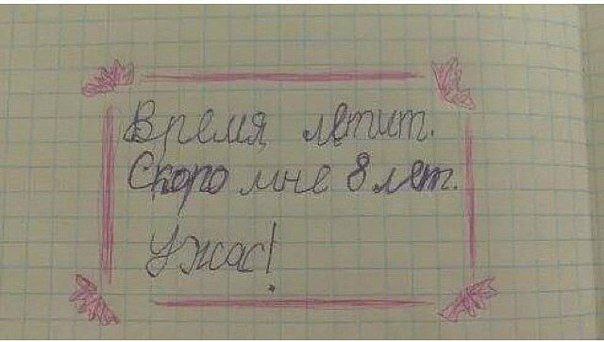 Время летит.
Скоро мне 8 лет.
Ужас!